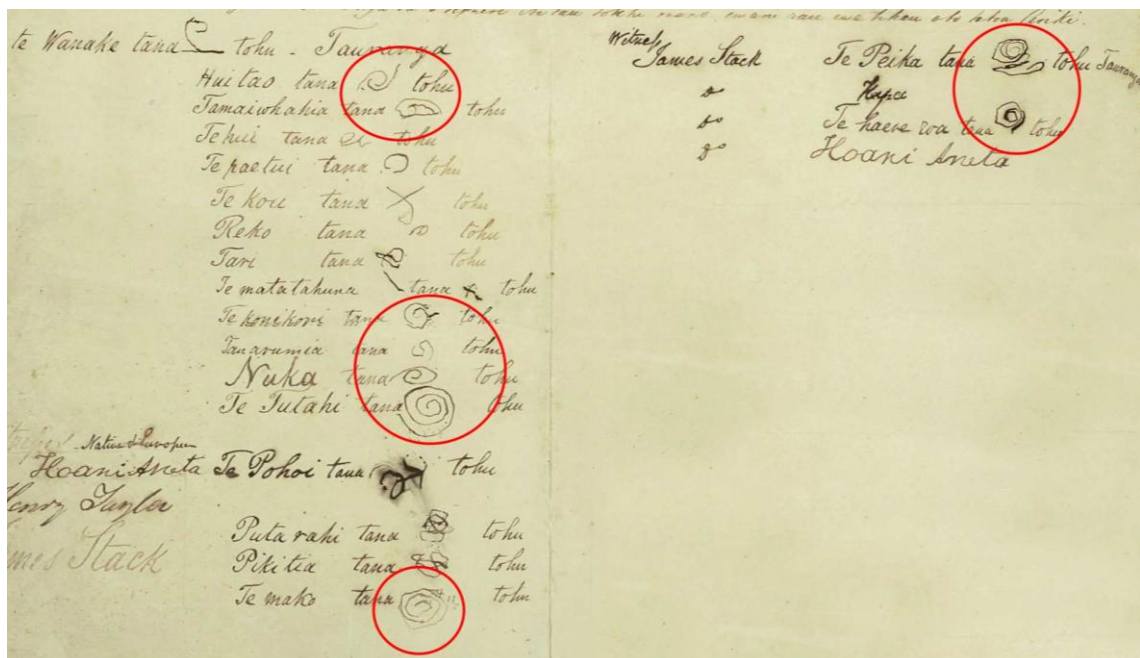 te Wanake tana tohu - Tauranga
Huitao tana tohu
Tamaiwhahia tana tohu
Te hui tana tohu
Te paetui tana tohu
Te kou tana tohu
Reko tana tohu
Tari tana tohu
Te matatahuna tana tohu
Te konikoni tana tohu
Tanarumia tana tohu
Nuka tana tohu
Te Tutahi tana tohu
Native & European
Hoani Aneta Te Pohoi tana tohu
Henry Taylor
Putarahi tana tohu
James Stack Pikitia tana tohu
Te mako tana tohu
Witness
James Stack Te Peika tana tohu Tauranga
do Kapa
do Te haere roa tana tohu
do Hoani Aneta